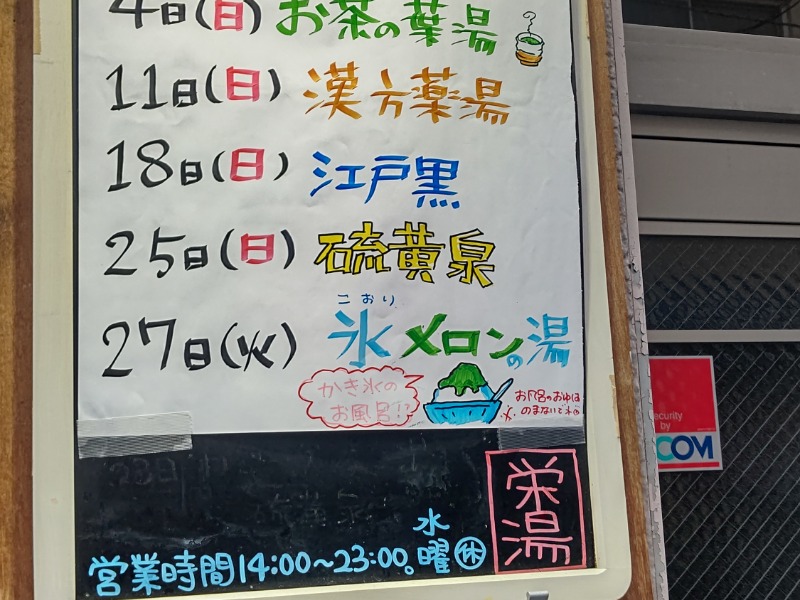 4日(日) お茶の葉湯
11日(日) 漢方薬湯
18日(日) 江戸黒
25日(日) 硫黄泉
こおり
27日(火) 氷メロンの湯
かき氷の
お風呂!?
お風呂のおゆは
のまないでネ
栄湯
水曜㊡
営業時間14:00～23:00。
ecurity
by
COM